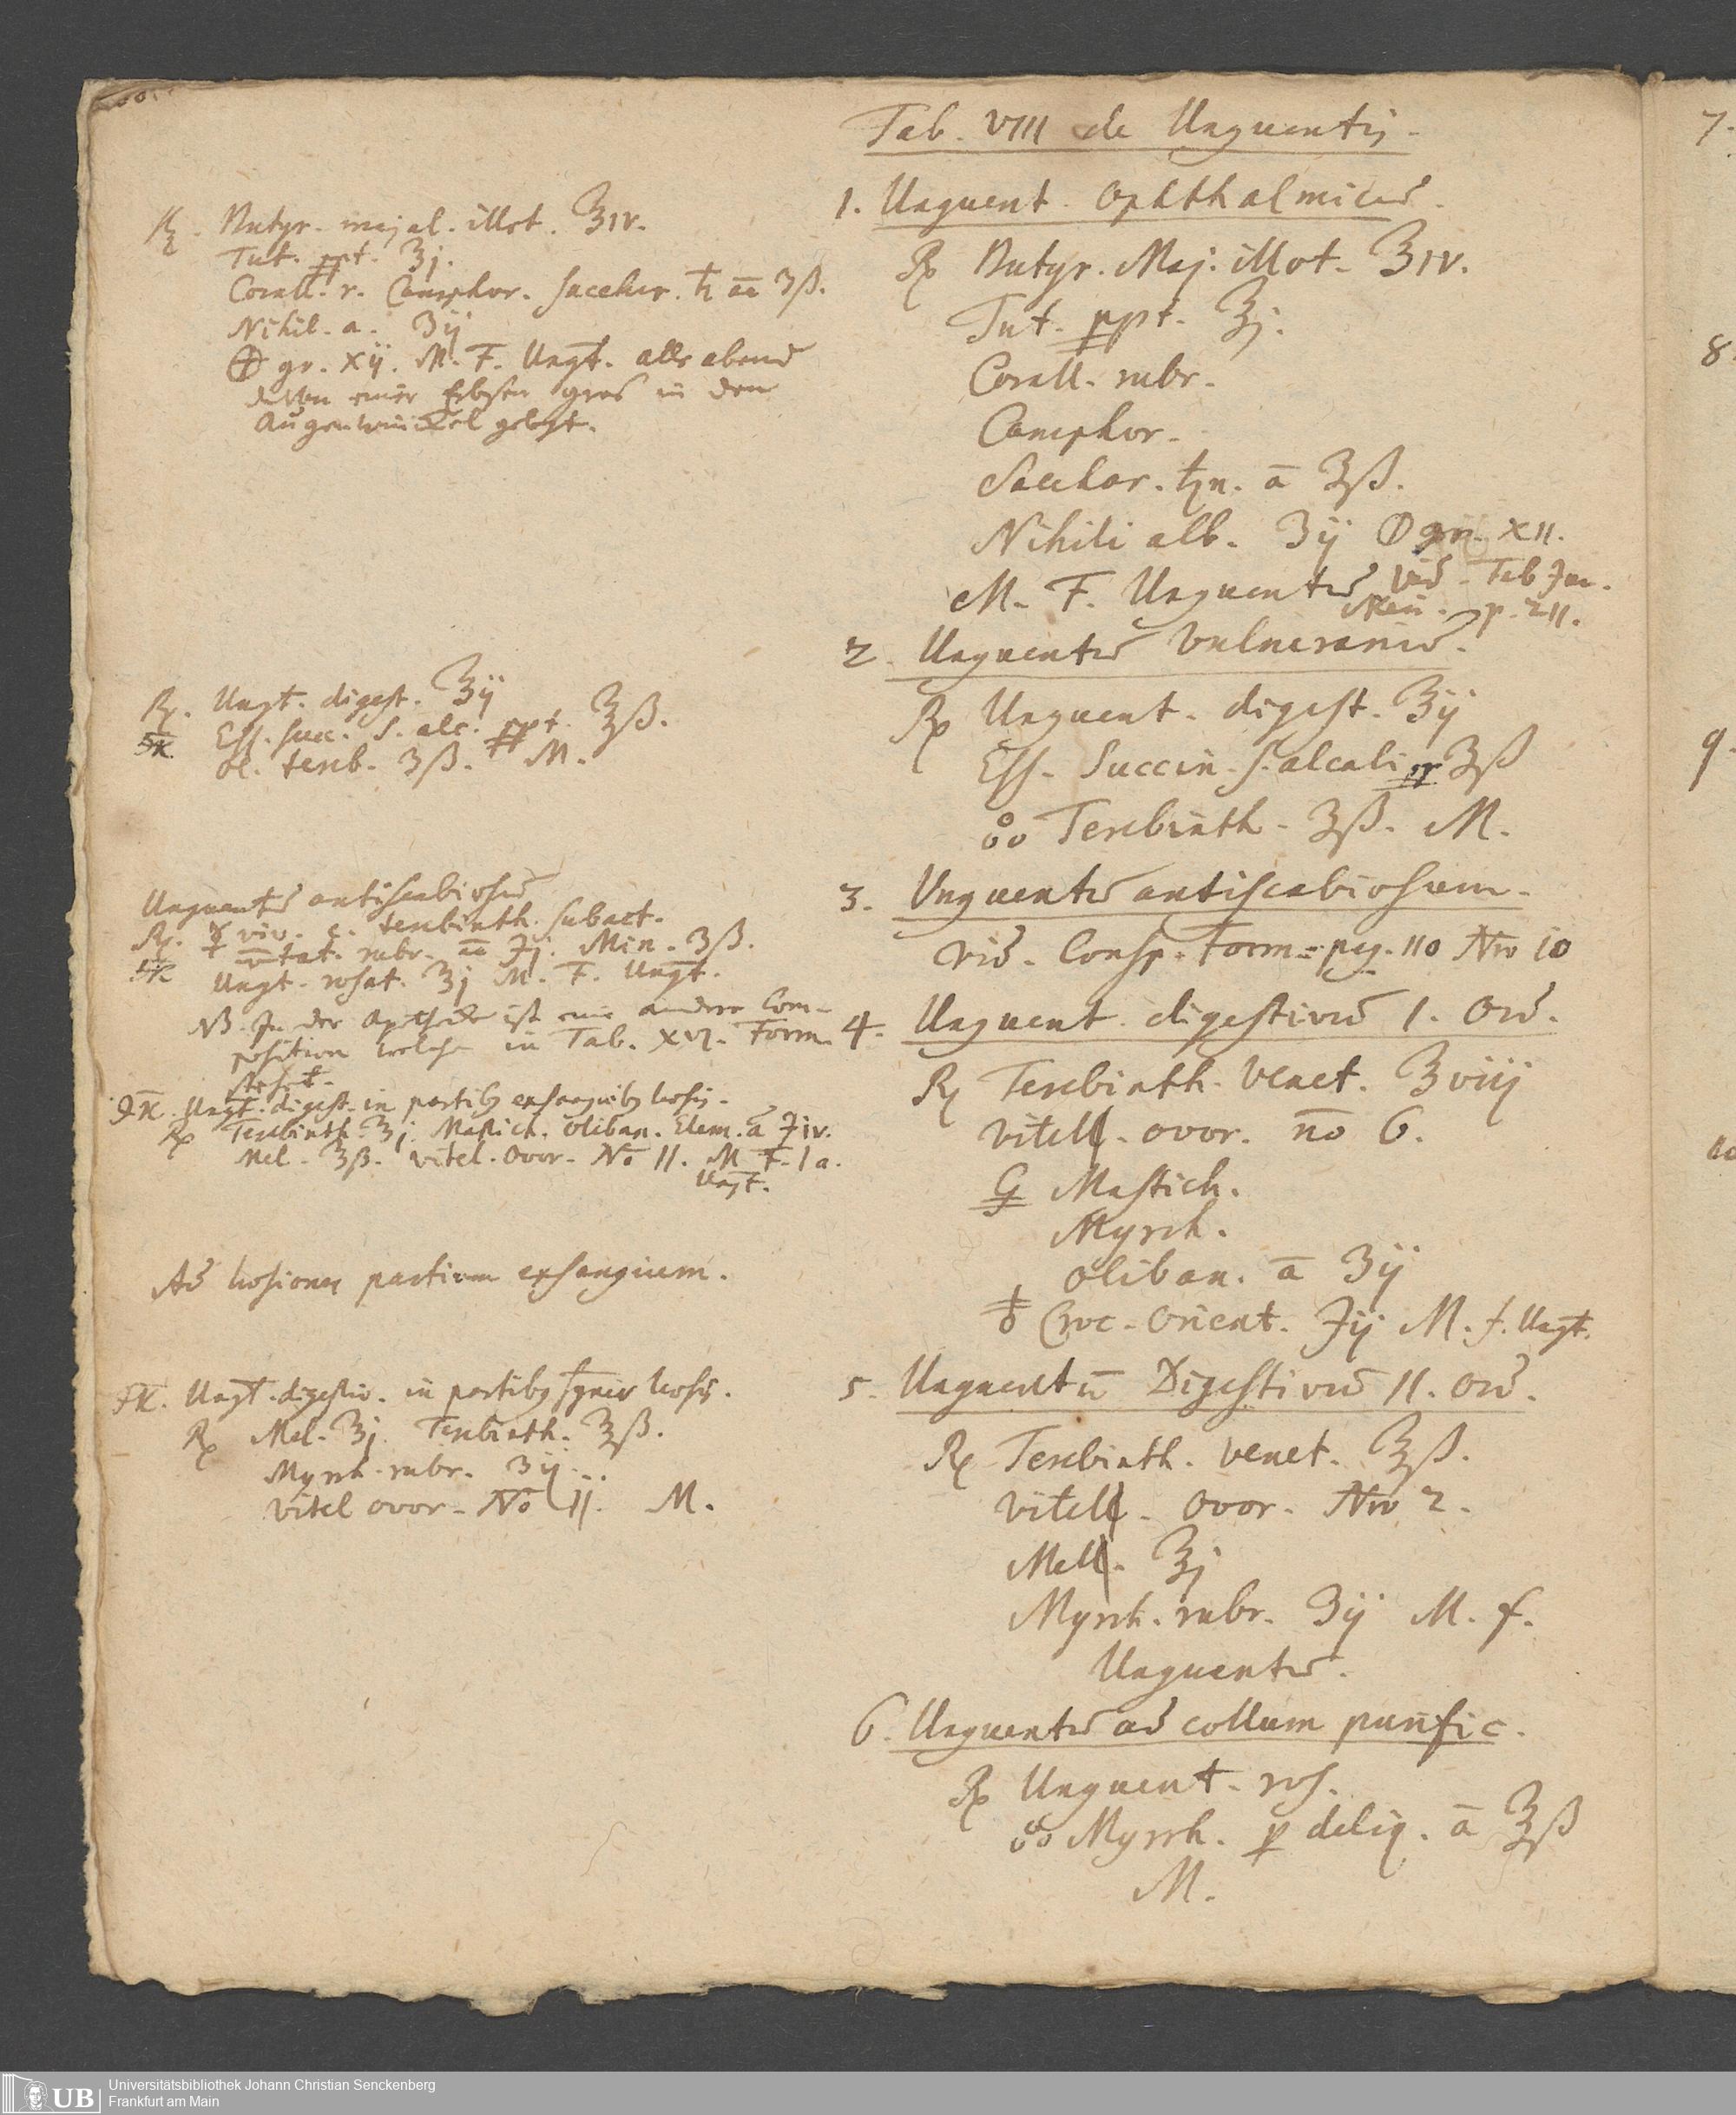 Tab. VIII de Unguentis.
1. Unguent. Ophthalmicū.
℞ Butyr. Maj. illot. ℥IV.
Tut. ppt. ℥j.
Corall. rubr.
Camphor.
Sacchar. ♄n. ā ℥ß.
Nihili alb. ʒij gr. XII.
M. F. Unguentū Vid. Tab
p. 211.
2. Unguentū Vulnerariū.
℞ Unguent. digest. ℥ij
Ess. Succin. s. alcali pp ℥ß
Terebinth. ʒß. M.
3. Unguentū antiscabiosum.
vid. Consp. Form. pag. 110 Nro 10
4. Unguent. digestivū I. Ord.
℞ Terebinth. Venet. ℥viij
Vitell. ovor. no 6.
G Mastich.
Myrrh.
Oliban. ā ʒij
Croc. Orient. ℈ij M. f. Ungt.
5. Unguentū Digestivū II. Ord.
℞ Terebinth. venet. ℥ß.
Vitell. ovor. Nro 2.
Mell. ℥j
Myrrh. rubr. ʒij M. f.
Unguentū.
6. Unguentū ad collum purific.
℞ Unguent. ros.
Myrrh. p deliq. ā ℥ß
M.
℞. Butyr. majal. illot. ℥IV.
Tut. ppt. ℥j.
Corall. r. Camphor. Sacchar. ♄ āā ℥ß.
Nihil. a. ʒij
gr. xij. M. F. Ungt. alle abend
davon einer Erbsen gros in den
Augenwinckel gelegt.
℞. Ungt. digest. ℥ij
Ess. succ. s. alc. ppt. ℥ß.
Ol. tereb. ʒß. M.
Unguentū antiscabiosū
℞. ☿ viv. c. terebinth. subact.
rubr. āā ℈j. Min. ʒß.
Ungt. rosat. ℥j M. F. Ungt.
NB. In der Apotheke ist eine andere Com-
position welche in Tab. XVI. Form.
stehet.
Ungt. digest. in partibq exsanguibq laesis.
℞ Terebinth. ℥j. Mastich. Oliban. Elem. ā ℈iv.
Mel. ℥ß. Vitel. Ovor. No II. M F. l a.
Ungt.
Ad laesiones partium exsanguium.
Ungt. digestiv. in partibq laesis.
℞ Mel. ℥j. Terebinth. ℥ß.
Myrrh. rubr. ʒij.
Vitel ovor. No II. M.
7.
8
9.
10
UB
Universitätsbibliothek Johann Christian Senckenberg
Frankfurt am Main